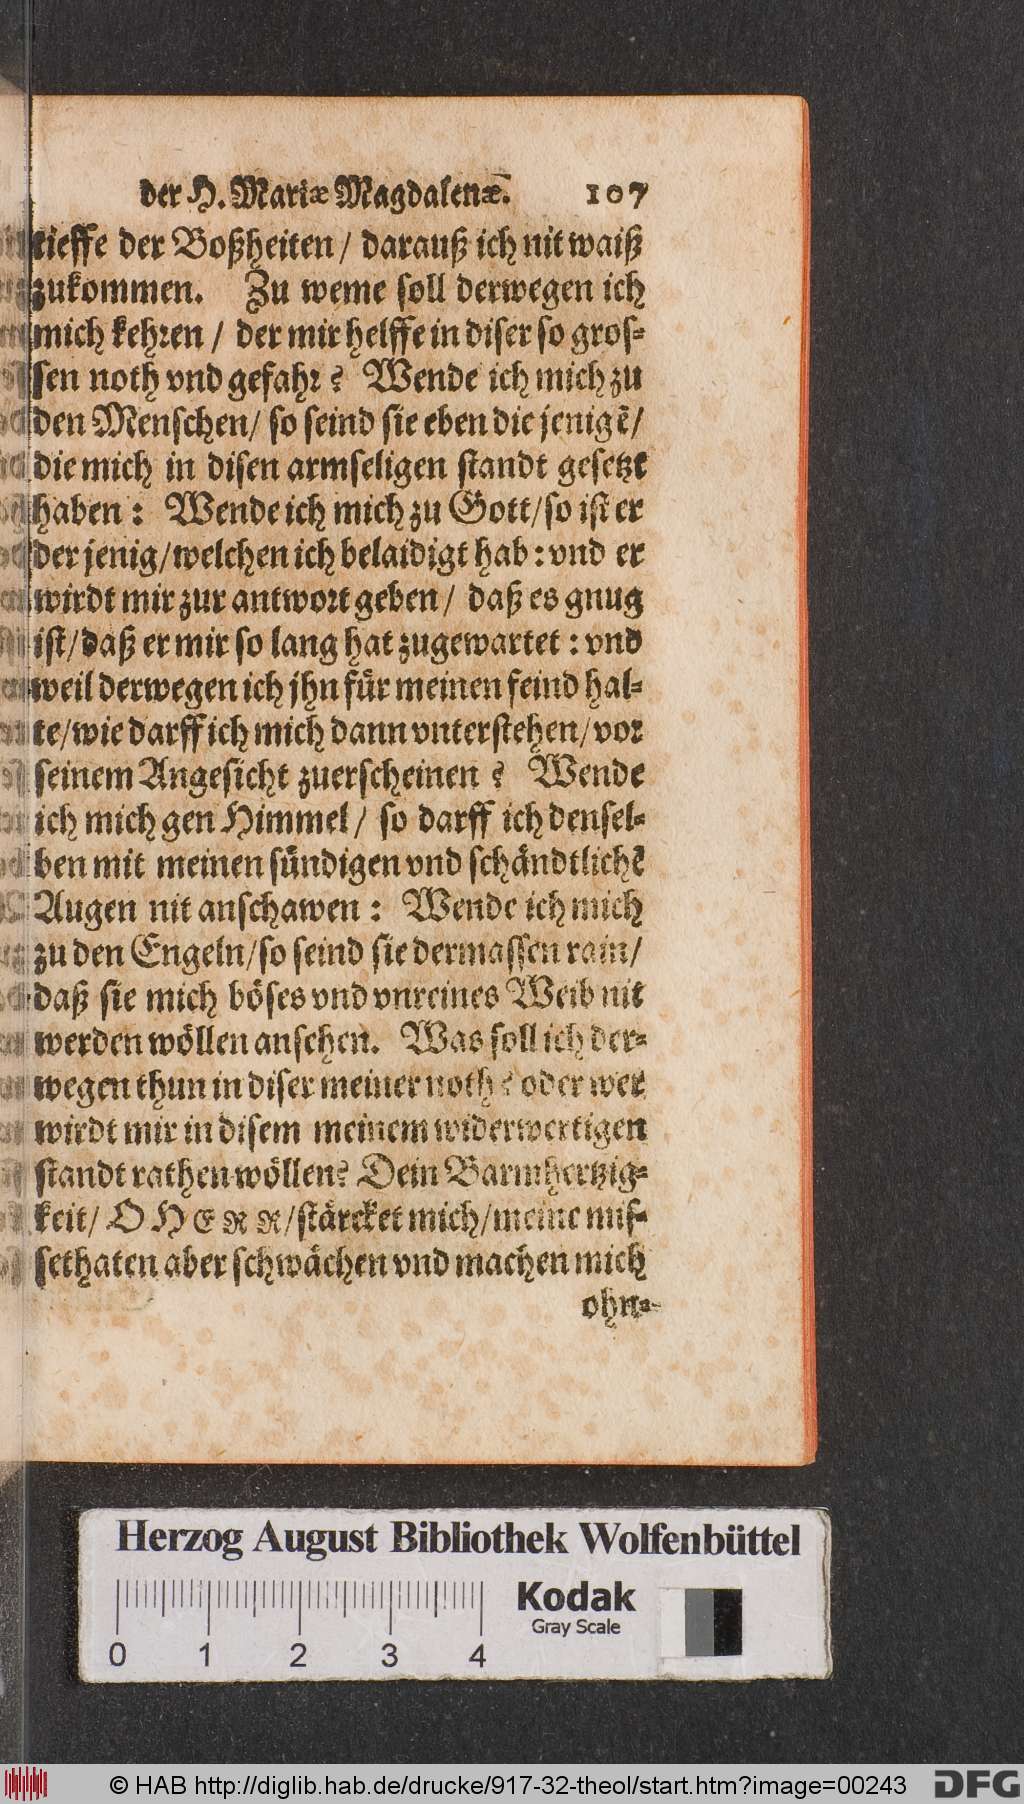 der H. Mariæ Magdalenæ. 107
tieffe der Boßheiten / darauß ich nit waiß
zukommen. Zu weme soll derwegen ich
mich kehren / der mir helffe in diser so gros-
sen noth vnd gefahr? Wende ich mich zu
den Menschen / so seind sie eben die jenigē /
die mich in disen armseligen standt gesetzt
haben: Wende ich mich zu Gott / so ist er
der jenig / welchen ich belaidigt hab: vnd er
wirdt mir zur antwort geben / daß es gnug
ist / daß er mir so lang hat zugewartet: vnd
weil derwegen ich jhn für meinen feind hal-
te / wie darff ich mich dann vnterstehen / vor
seinem Angesicht zuerscheinen? Wende
ich mich gen Himmel / so darff ich densel-
ben mit meinen sündigen vnd schändtlichē
Augen nit anschawen: Wende ich mich
zu den Engeln / so seind sie dermassen rain /
daß sie mich böses vnd vnreines Weib nit
werden wöllen ansehen. Was soll ich der-
wegen thun in diser meiner noth? oder wer
wirdt mir in disem meinem widerwertigen
standt rathen wöllen? Dein Barmhertzig-
keit / O HERR / stärcket mich / meine mis-
sethaten aber schwächen vnd machen mich
ohn-
Herzog August Bibliothek Wolfenbüttel
Kodak
Gray Scale
0 1 2 3 4
© HAB http://diglib.hab.de/drucke/917-32-theol/start.htm?image=00243
DFG